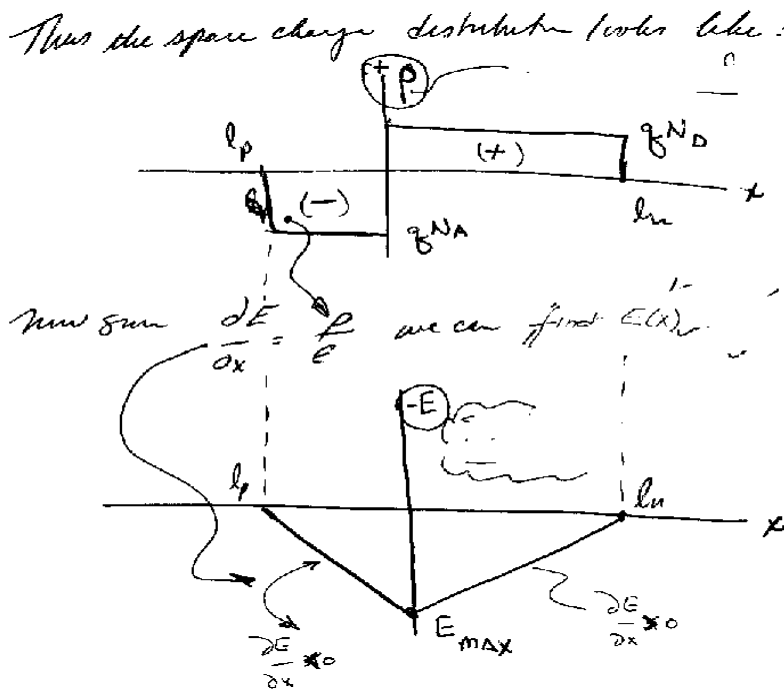 Thus the space charge distribution looks like:
+ρ
l_p (+) qN_D
x
(−) l_n
qN_A
∂E/∂x = ρ/ϵ we can find E(x)
-E
l_p l_n
x
E_MAX
∂E/∂x 0 ∂E/∂x 0